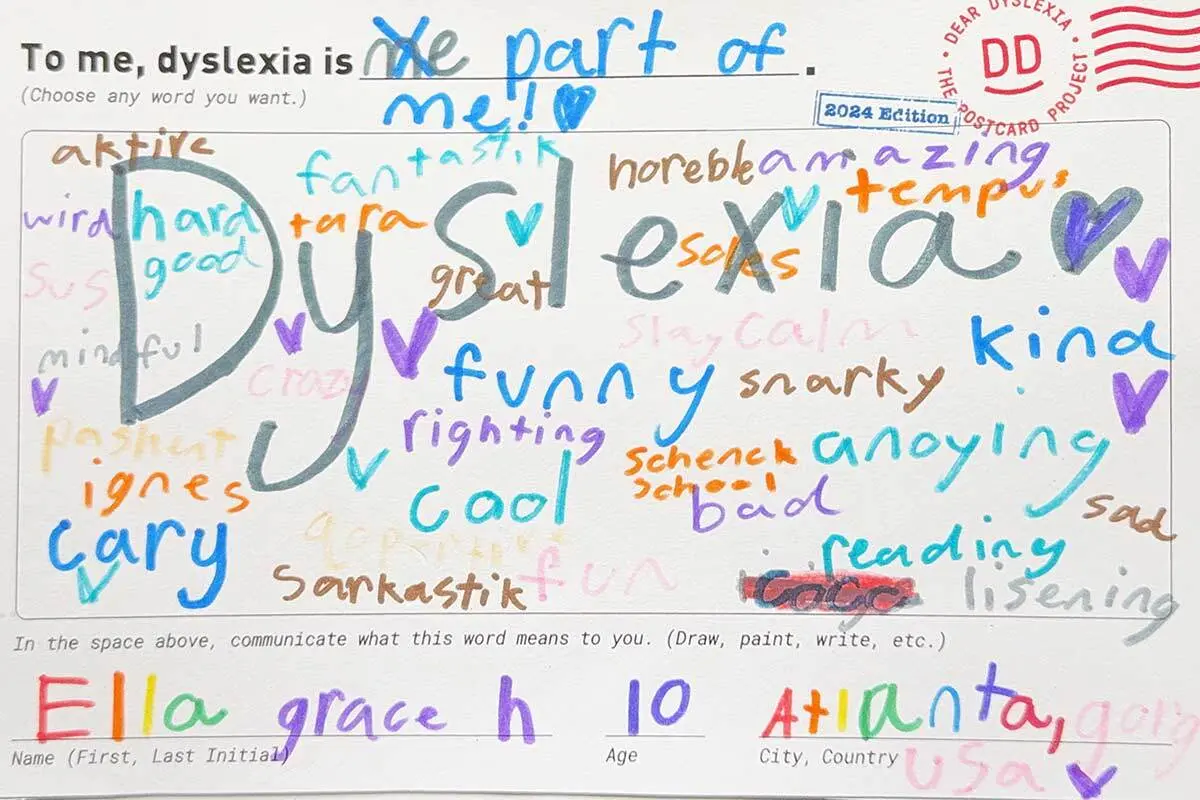 To me, dyslexia is me part of me! .
(Choose any word you want.)
DEAR DYSLEXIA
DD
THE POSTCARD PROJECT
2024 Edition
aktive fantastik horeble amazing
wird hard tara tempus
good soles
sus great
Dyslexia
mindful slay calm kind
crazy funny snarky
pashent righting anoying
ignes cool schenck school
bad sad
cary reading
sarkastik fun listening
In the space above, communicate what this word means to you. (Draw, paint, write, etc.)
Ella grace h 10 Atlanta,
Name (First, Last Initial) Age City, Country
usa